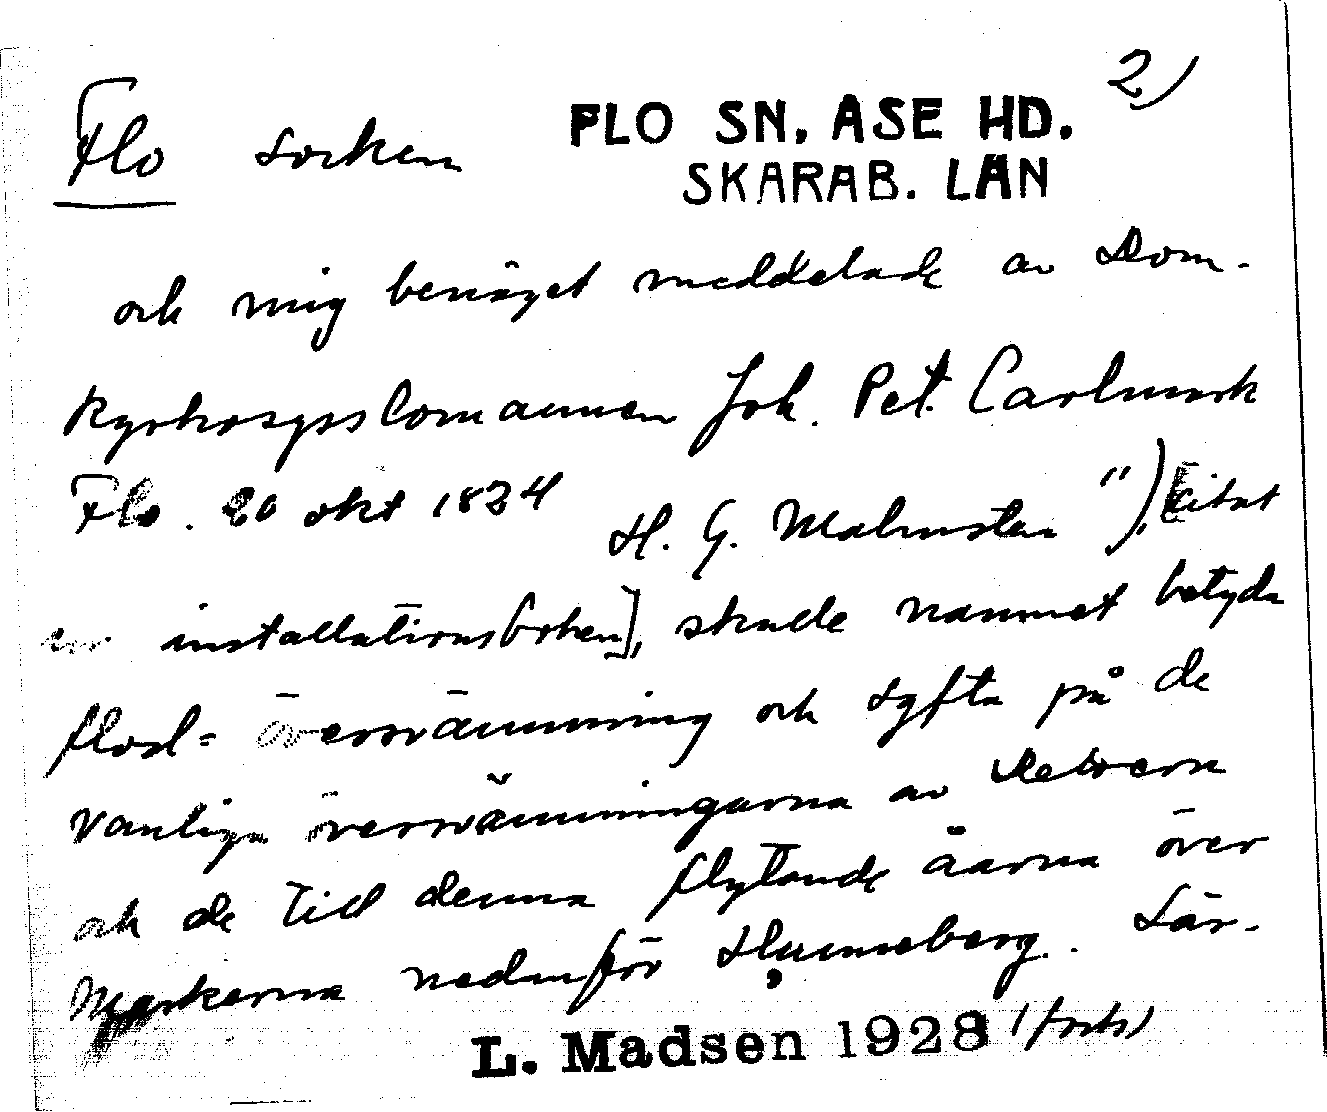 2)
Flo socken
FLO SN. ÅSE HD.
SKARAB. LÄN
och mig benäget meddelade av Dom-
kyrkosysslomannen Joh. Pet. Carlmark
Flo. 20 okt 1834 H. G. Malmsten"), [citat
ur installationsboken], skulle namnet betyda
flod- översvämning och syfta på de
vanliga översvämningarna av
och de till denna flytande åarna över
markerna nedanför Hunneberg. Sär-
L. Madsen 1928 (forts)